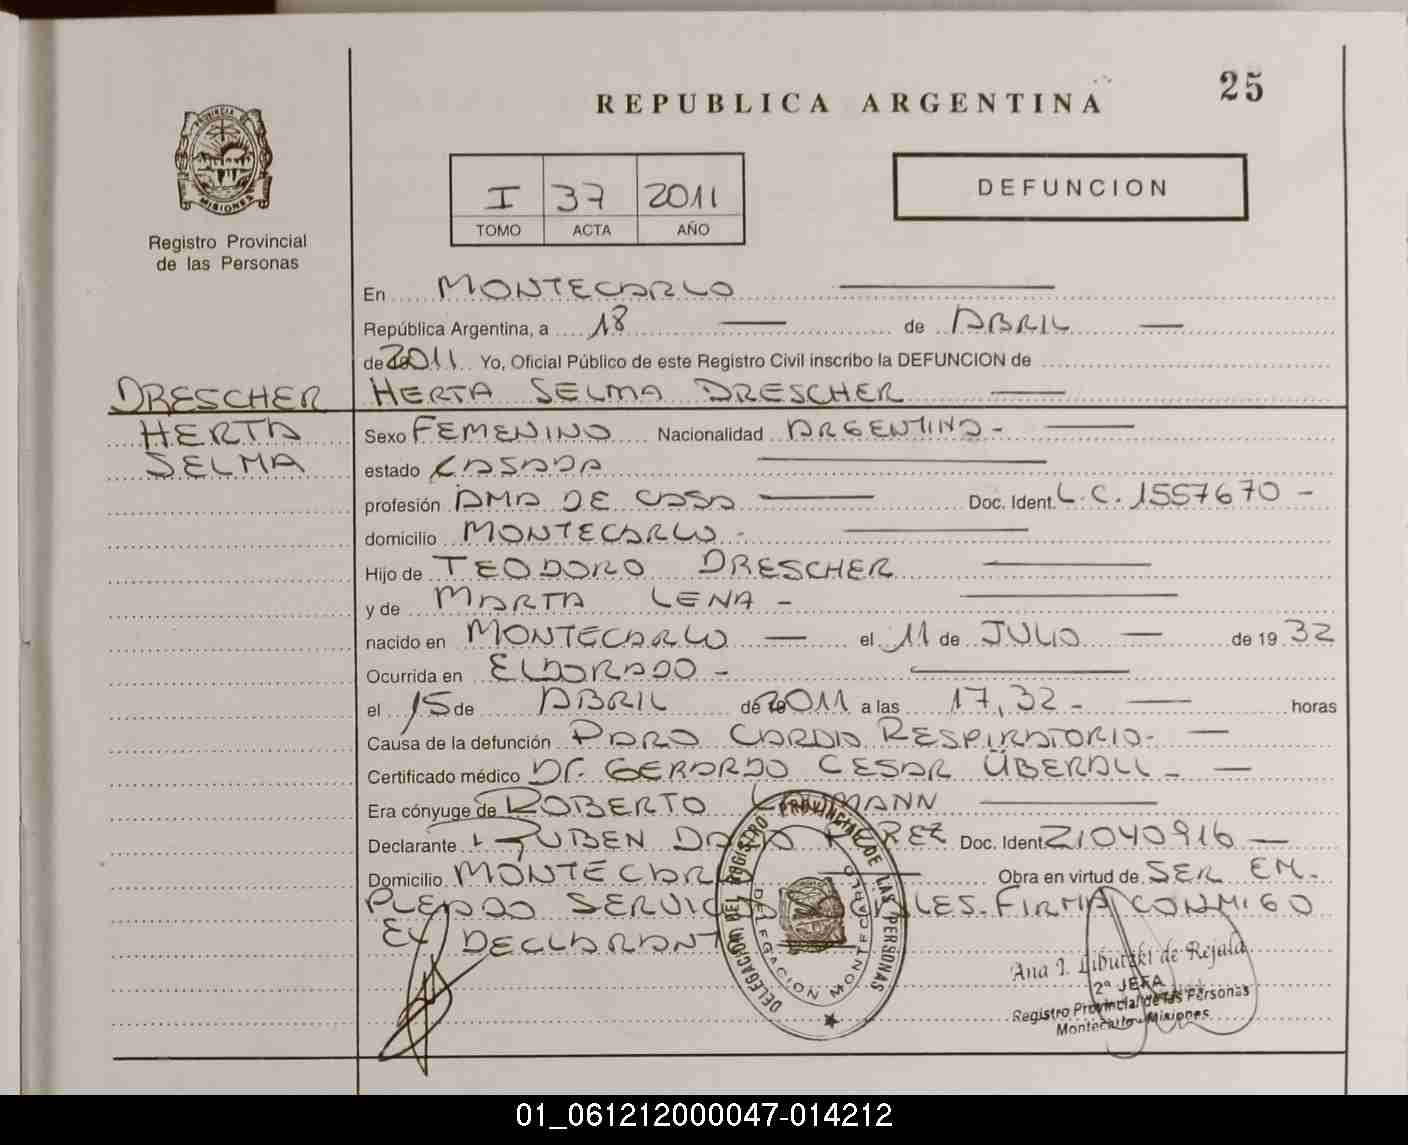 25
REPUBLICA ARGENTINA
PROVINCIA DE
MISIONES
Registro Provincial
de las Personas
I 37 2011
TOMO ACTA AÑO
DEFUNCION
En MONTECARLO
República Argentina, a 18 de ABRIL
de 2011 Yo, Oficial Público de este Registro Civil inscribo la DEFUNCION de
DRESCHER HERTA SELMA DRESCHER
HERTA Sexo FEMENINO Nacionalidad ARGENTINA -
SELMA estado CASADA
profesión AMA DE CASA Doc. Ident. L.C. 1557670 -
domicilio MONTECARLO -
Hijo de TEODORO DRESCHER
y de MARTA LENA -
nacido en MONTECARLO el 11 de JULIO de 19 32
Ocurrida en ELDORADO -
el 15 de ABRIL de 2011 a las 17,32 - horas
Causa de la defunción PARO CARDIO RESPIRATORIO -
Certificado médico Dr. GERARDO CESAR ÜBERALL -
Era cónyuge de ROBERTO MANN
Declarante RUBEN Doc. Ident. 21040916
Domicilio MONTECARLO Obra en virtud de SER EM-
PLEADO SERVICIOS FIRMA CONMIGO
EL DECLARANT
DELEGACION DEL REGISTRO PROVINCIAL DE LAS PERSONAS
DELEGACION MONTECARLO
Ana I. de Rejala
2ª JEFA
Registro Provincial de las Personas
Montecarlo - Misiones
01_061212000047-014212